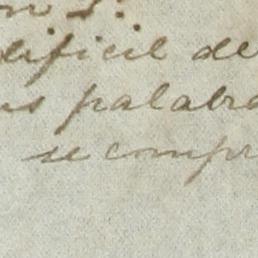 dificil de
us palabra
se compr